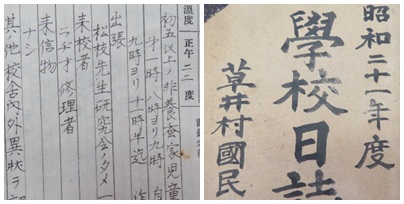 溫度 正午 二二 度
初五以上ノ非養蚕家児童
第一時 八時ヨリ九時
九時ヨリ十一時半迄
出張
松枝先生研究会ノタメ
来校者
ラヂオ修理者
来信物
ナシ
其ノ他校舎内外異状ヲ
昭和二十一年度
學校日誌
草井村國民